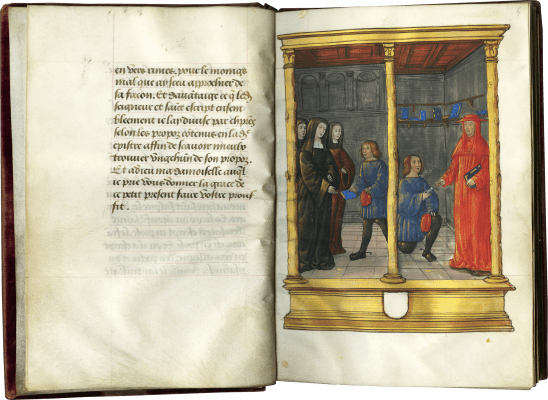 en vers rimes, pour le moings
mal que ay sceu approcher de
sa facon. Et davātaige ce q̄ led.
seigneur et saīct escript ensem
blement ie lay divise par chp̄res
selon les propoz cōtenus en la d.
epistre affin de scavoir mieulx
trouver vng chūn de son propoz.
Et adieu ma damoiselle auq̄l
ie prie vous donner la grace de
ce petit present faire vostre prouf
fit.